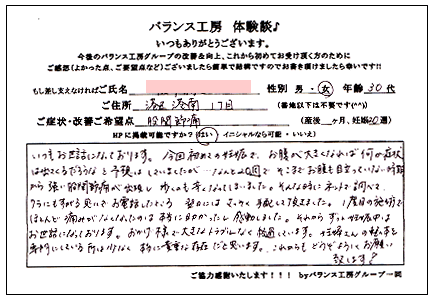 バランス工房 体験談♪
いつもありがとうございます。
今後のバランス工房グループの改善&向上、これから初めてお受け頂く方のために
ご感想(よかった点、ご要望点など)ございましたら簡単で結構ですのでお書き頂けましたら幸いです!!
もし差し支えなければご氏名 性別 男・女 年齢 30代
ご住所 港区港南1丁目 (番地以下は不要です(^^))
ご症状・改善ご希望点 股関節痛 (産後 ヶ月、妊娠20週)
HPに掲載可能ですか?(はい イニシャルなら可能・いいえ)
いつもお世話になっております。今回初めての妊娠で、お腹が大きくなれば何か症状
は出てくるだろうなと予想はしていましたが…なんと20週で そこまでお腹も目立っていない時期
から強い股関節痛が出現し 歩くのも辛くなってしまいました。そんな時にネットで調べて、
ワラにもすがる思いでお電話したところ 翌日にはさっそく予約して頂きました。1度目の施術で
ほとんど痛みがなくなったのは本当に助かったし感動しました。それから ずっと妊娠中は
お世話になっております。おかげ様で大きなトラブルなく経過しています。妊婦さんの施術を
専門にしている所は少なく 本当に貴重な存在だと思います。これからもどうぞよろしくお願い
致します!
ご協力感謝いたします!!! byバランス工房グループ一同